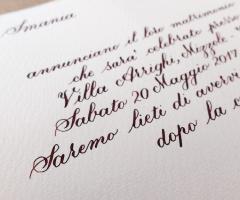 Smania
annunciano il loro matrimonio
che sarà celebrato presso
Villa Arrighi, Mizzole -
Sabato 20 Maggio 2017
Saremo lieti di avervi
dopo la c